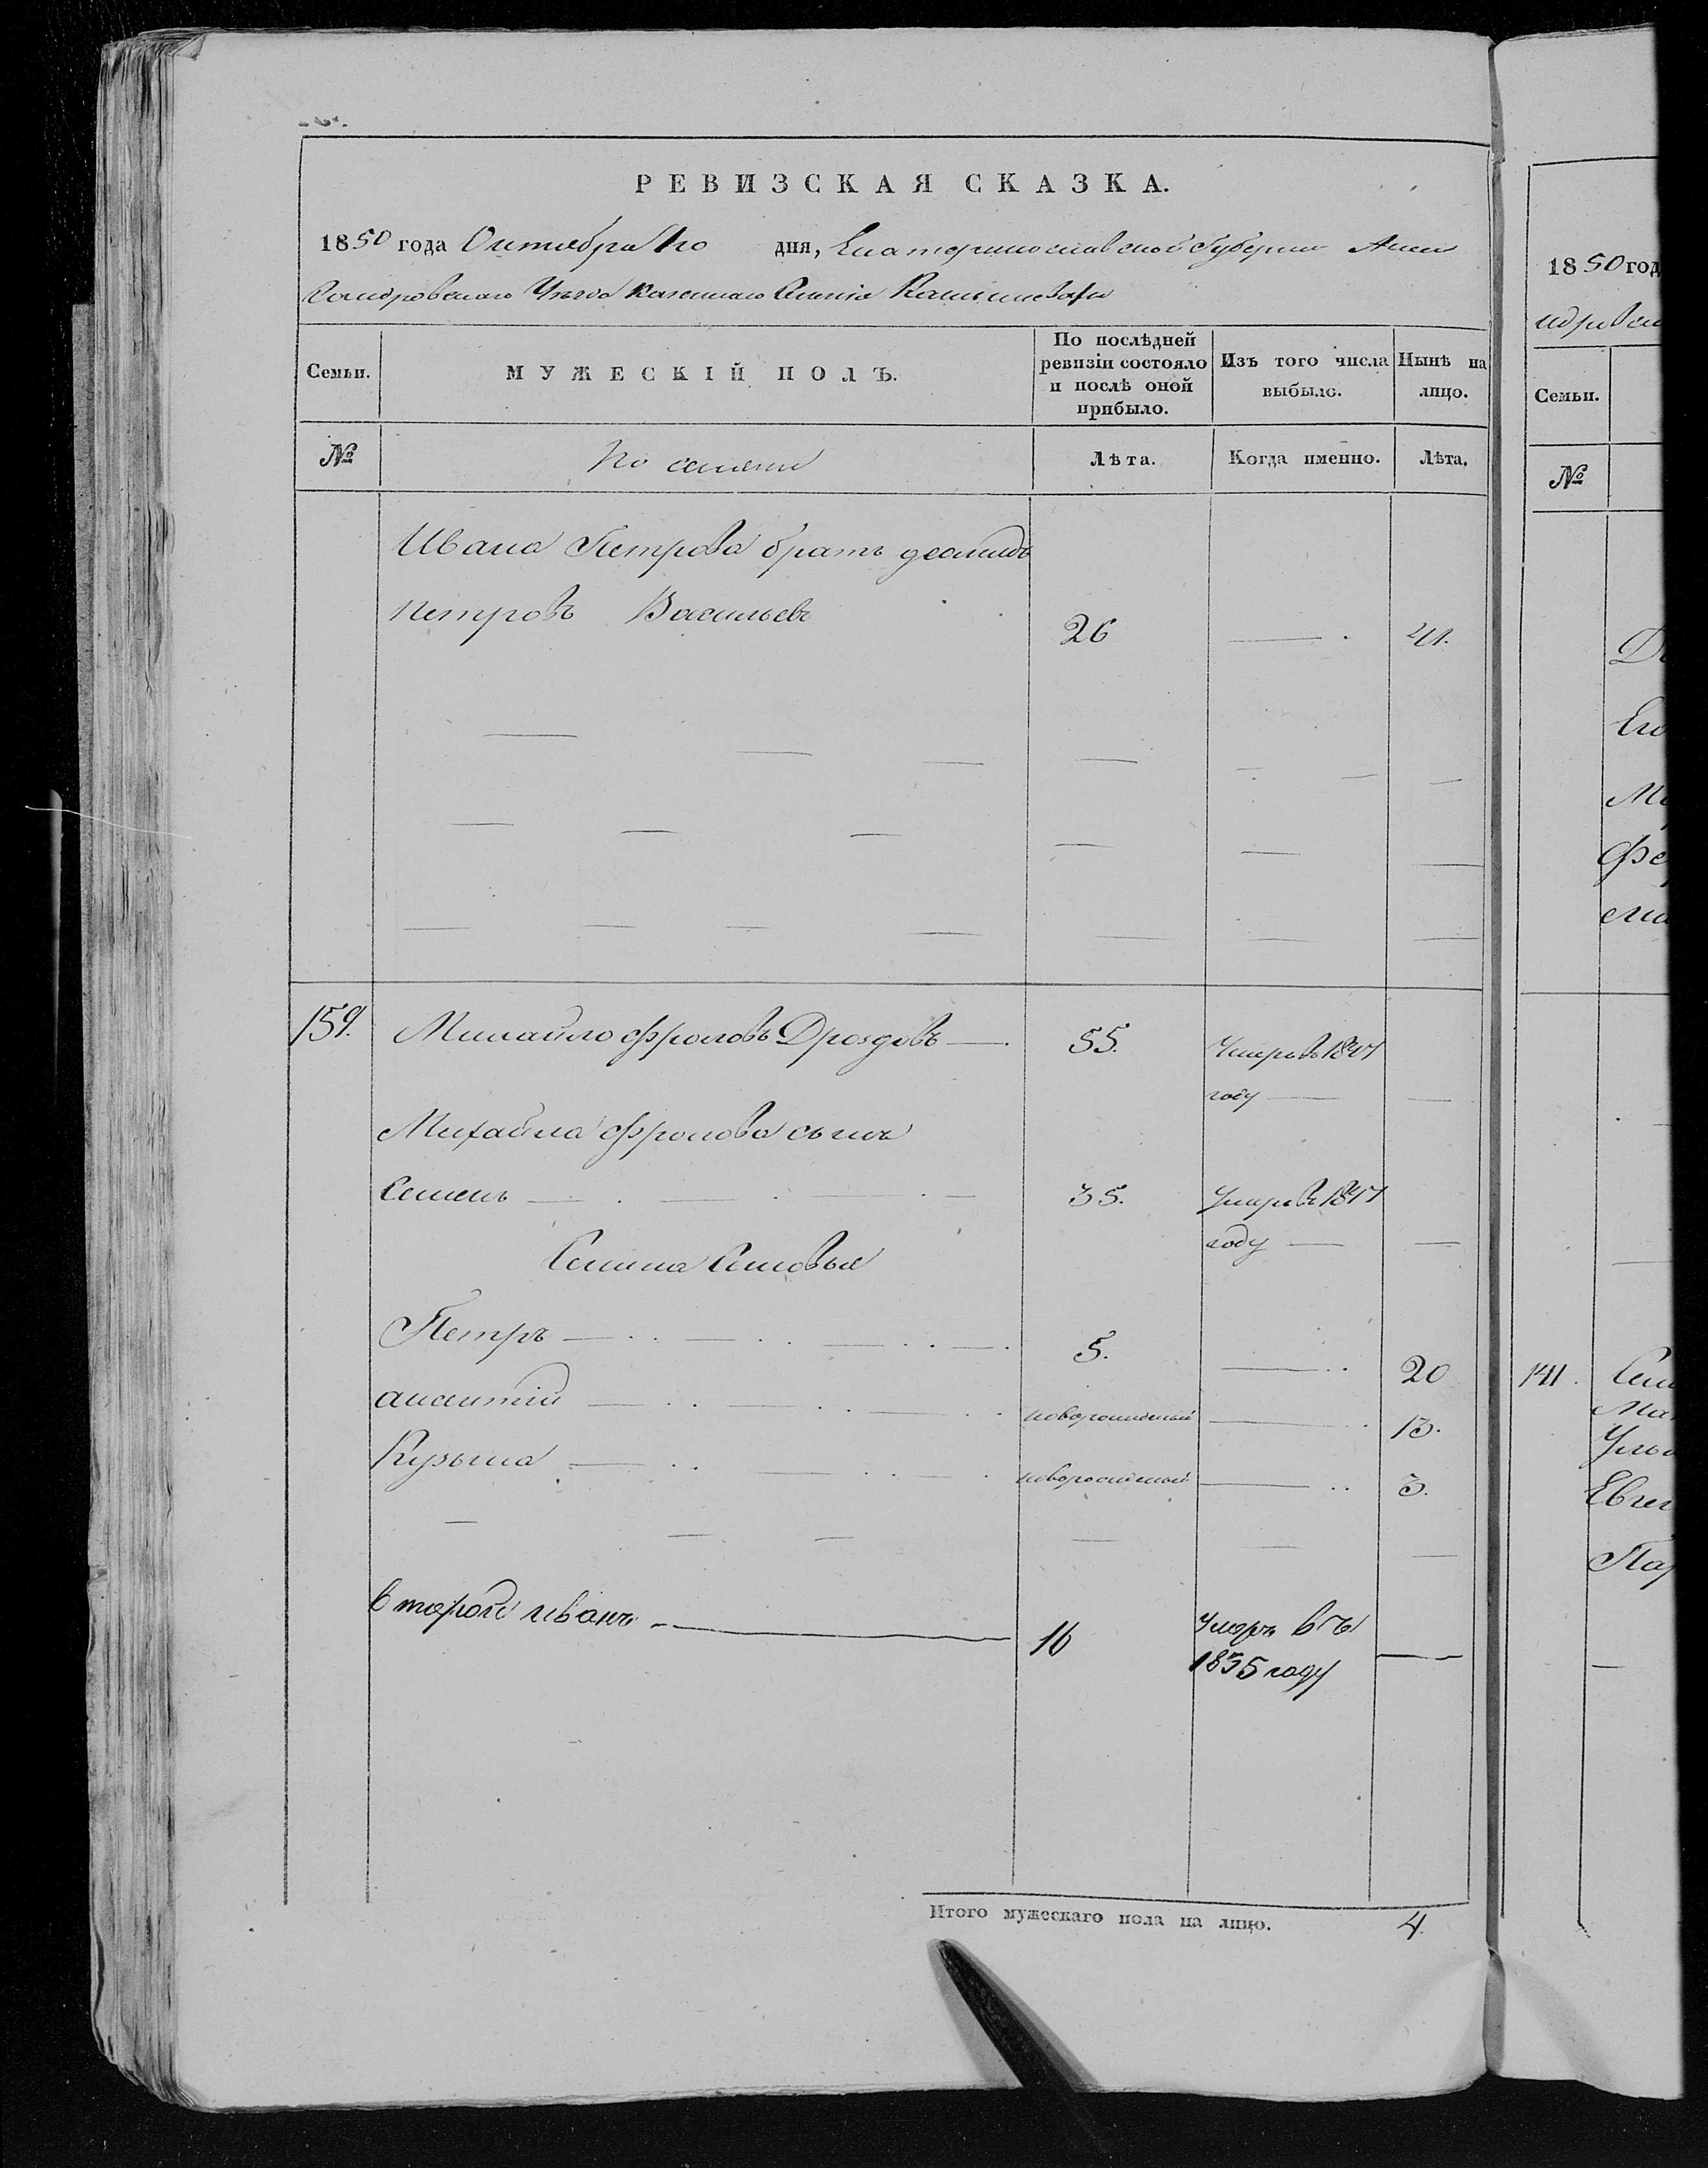 РЕВИЗСКАЯ СКАЗКА.
1850 года Октября 10 дня, Екатеринославской Губернии Алек
сандровскаго Уезда Казеннаго Селения
Семьи.
МУЖЕСКІЙ ПОЛЪ.
По послѣдней ревизіи состояло и послѣ оной прибыло.
Изъ того числа выбыло.
Нынѣ на лицо.
№
Лѣта.
Когда именно.
Лѣта.
Ивана Петрова братъ
петровъ Васильевъ 26 41.
159. Михайло Фроловъ Дроздовъ 55. Умеръ въ 1847
году
Михайла Фролова сынъ
Семенъ 35. Умеръ въ 1847
году
Семена Сыновья
Петръ 5. 20
авксентий новорожденный 13.
Кузьма новорожденный 3.
второй иванъ 16 умеръ въ
1835 году
Итого мужескаго пола на лицо. 4.
1850 год
Семьи.
№
141.